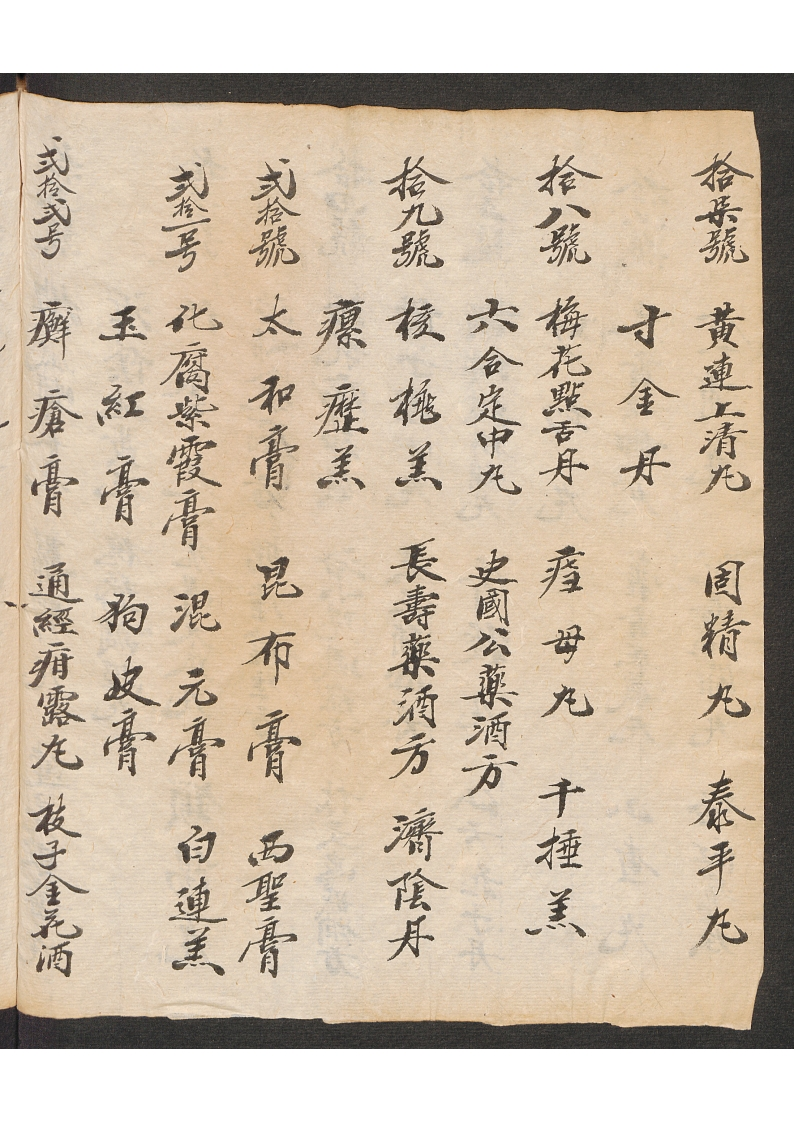 拾柒號 黃連上清丸 固精丸 泰平丸
寸金丹
拾八號 梅花點舌丹 疰母丸 千捶羔
六合定中丸 史國公藥酒方
拾九號 核桃羔 長壽藥酒方 濟陰丹
瘰癧羔
弍拾號 太和膏 昆布膏 西聖膏
弍拾一号 化腐紫霞膏 混元膏 白連羔
玉紅膏 狗皮膏
弍拾弍号 癬瘡膏 通經甘露丸 枝子金花酒